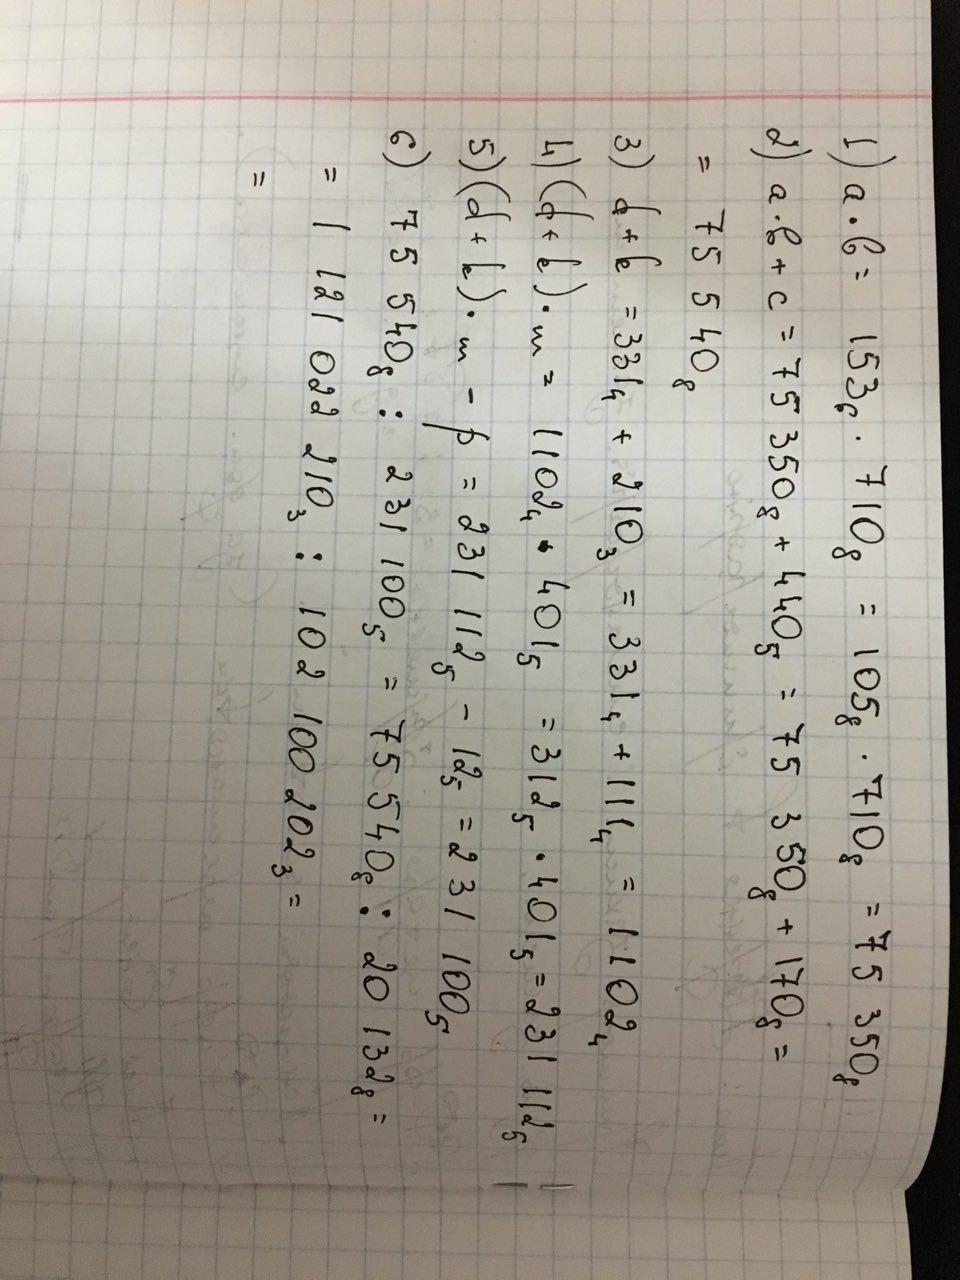 1) a·b = 153₆ · 710₈ = 105₈ · 710₈ = 75 350₈
2) a·b + c = 75 350₈ + 440₅ = 75 350₈ + 170₈ =
= 75 540₈
3) d + k = 331₄ + 210₃ = 331₄ + 111₄ = 1102₄
4) (d + k)·m = 1102₄ · 401₅ = 312₅ · 401₅ = 231 112₅
5) (d + k)·m - p = 231 112₅ - 12₅ = 231 100₅
6) 75 540₈ : 231 100₅ = 75 540₈ : 20 132₈ =
= 1 121 022 210₃ : 102 100 202₃ =
=